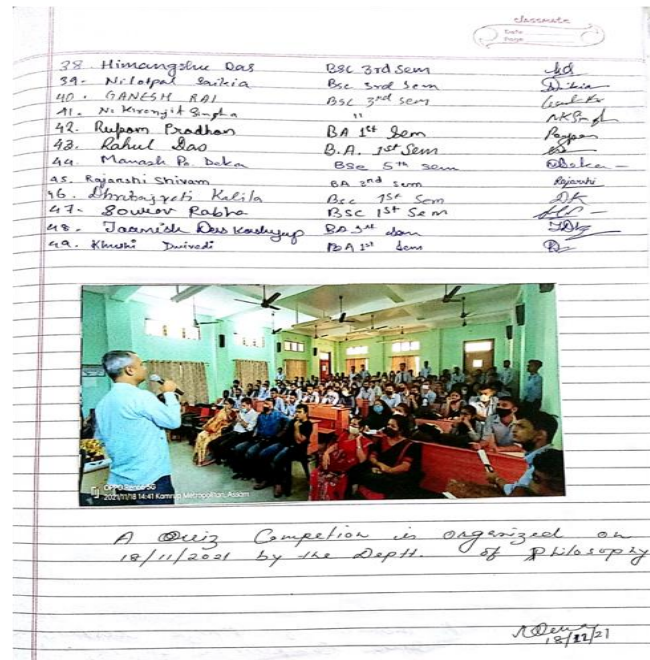 classmate
Date
Page
38. Himangshu Das BSC 3rd Sem
39. Nilotpal Saikia BSC 3rd Sem
40. GANESH RAI BSC 3rd Sem
41. N. Kironjit Singha " NKSingh
42. Rupom Pradhan BA 1st Sem
43. Rahul Das B.A. 1st Sem
44. Manash Pr. Deka BSC 5th Sem
45. Rajanshi Shivam BA 2nd Sem Rajanshi
46. Dhritajyoti Kalita BSC 1st Sem DK
47. Sourov Rabha BSC 1st Sem
48. Dev Kashyap BA 1st Sem
49. Khushi Dwivedi BA 1st Sem
OPPO Reno6 5G
2021/11/18 14:41 Kamrup Metropolitan, Assam
A Quiz Competion is organized on
18/11/2021 by the Deptt. of Philosophy
18/11/21